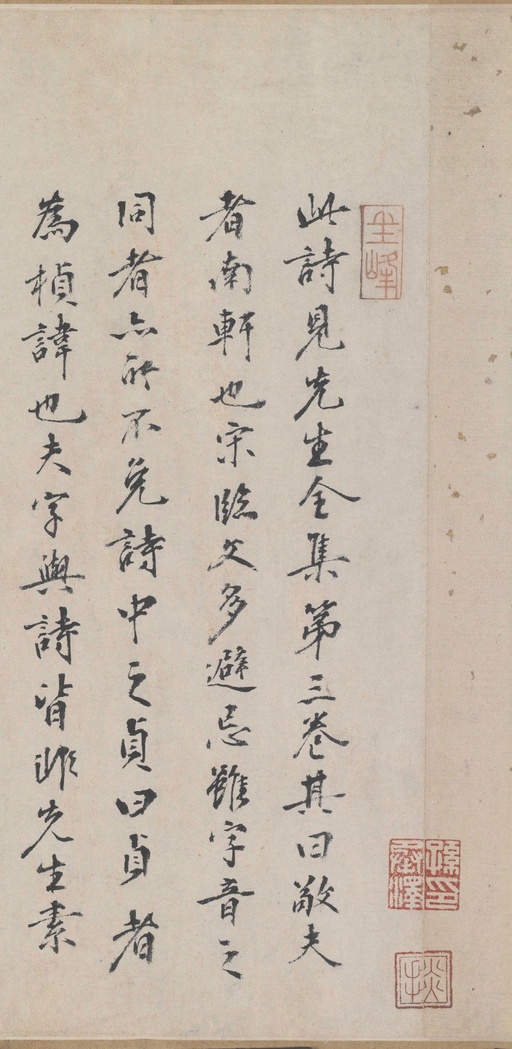 此詩見先生全集第三卷其曰敬夫
者南軒也宋臨文多避忌雖字音之
同者亦所不免詩中之貞曰貞者
為楨諱也夫字與詩皆雖先生素
孫印承澤